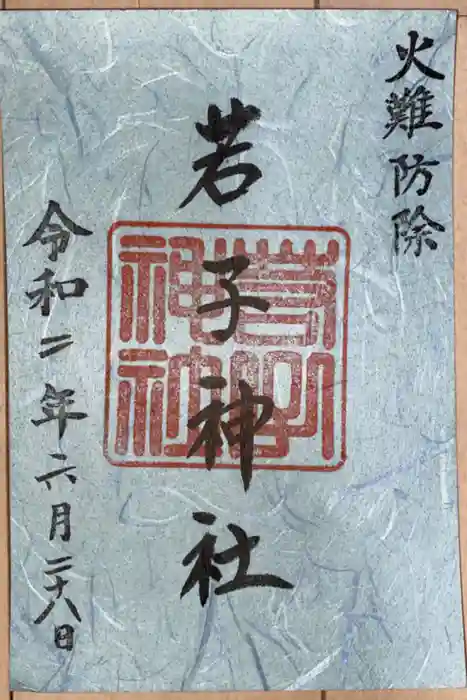 火難防除
若子神社
令和二年六月二十八日